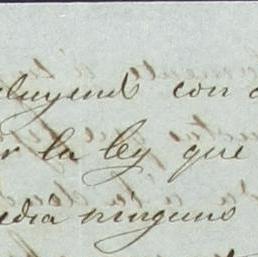 cluyend con
r la ley que
edia ninguno